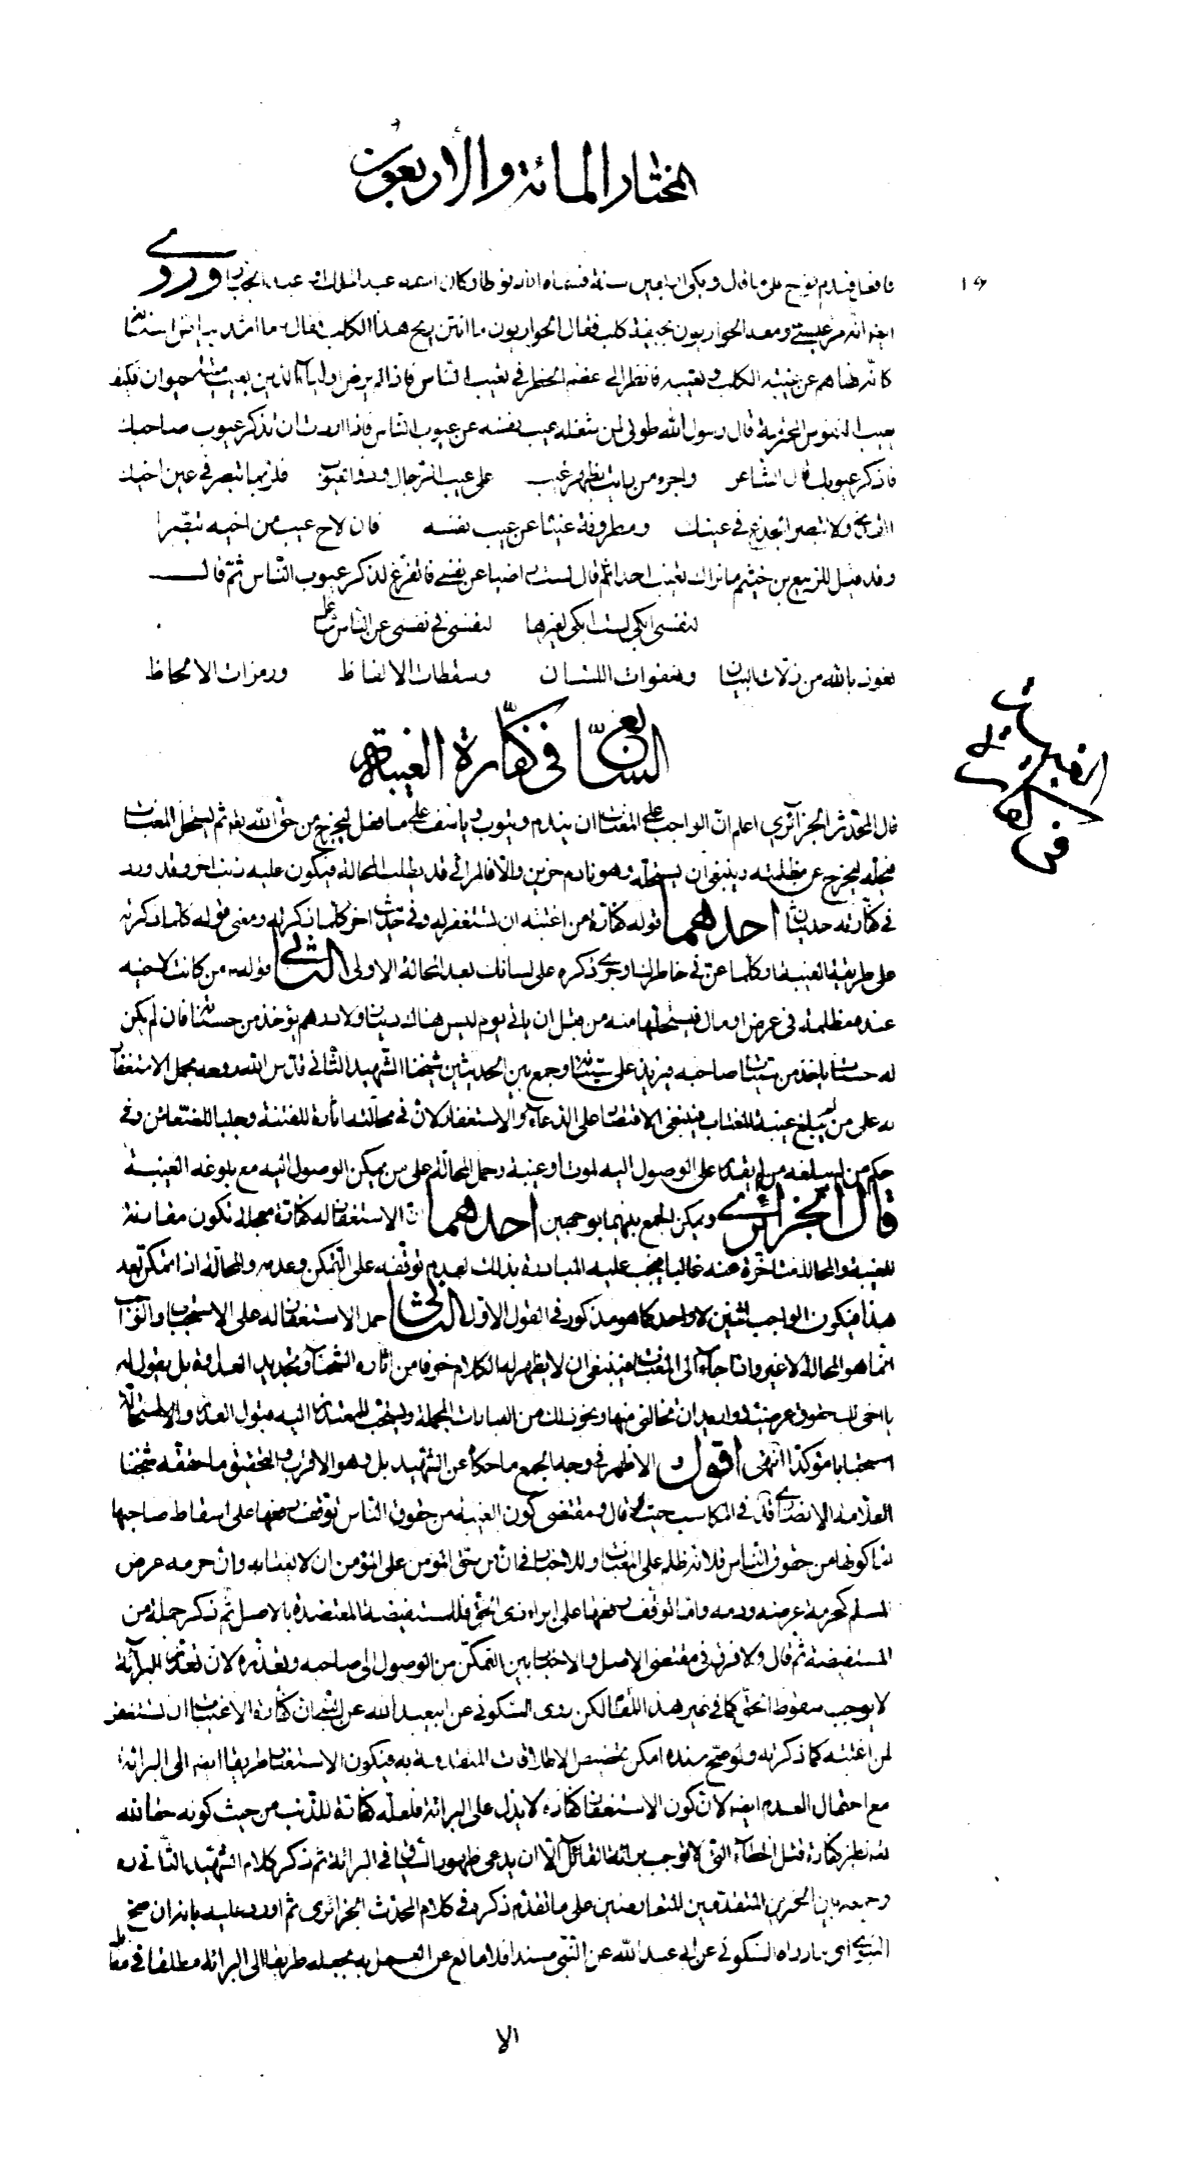 المختار المائة والأربعون
١٦
كانه نهاهم عن غيبة الكلب وتعييبه فانظر الى عظم الخطر في تعييب الناس فاذا لم يرض اولياء الدين بعيب ميتة حيوان فكيف
بعيب النفوس المحترمة قال رسول الله طوبى لمن شغله عيب نفسه عن عيوب الناس فاذا اردت ان تذكر عيوب صاحبك
فاذكر عيوبك قال الشاعر واجرء من رايت بظهر غيب على عيب الرجال ذوو العيوب فلربما تبصر في عين اخيك
القذى ولا تبصر الجذع في عينك ومطروفة عيناه عن عيب نفسه فان لاح عيب من اخيه تبصرا
وقد قيل للربيع بن خيثم ما نراك تغيب احدا فقال لست راضيا عن نفسي فاتفرغ لذكر عيوب الناس ثم قال
لنفسي ابكي لست ابكي لغيرها لنفسي في نفسي عن الناس شاغل
نعوذ بالله من زلات البيان وهفوات اللسان وسقطات الالفاظ ورمزات الالحاظ
السابع في كفارة الغيبة
في كفارة الغيبة
قال المحدث الجزائري اعلم ان الواجب على المغتاب ان يندم ويتوب ويتاسف على ما فعل ليخرج من حق الله ثم يستحل المغتاب
فيحله ليخرج عن مظلمته وينبغي ان يستحله وهو نادم حزين والا فالمرائي قد يطلب المحالة فيكون عليه ذنب اخر وقد ورد
في كفارته حديثان احدهما قوله كفارة من اغتبته ان تستغفر له وفي حديث اخر كلما ذكرته ومعنى قوله كلما ذكرته
على طريق الغيبة او كلما عن في خاطرك او جرى ذكره على لسانك بعد المحالة الاولى الثاني قوله من كانت لاخيه
عنده مظلمة في عرض او مال فليستحلها منه من قبل ان يأتي يوم ليس هناك دينار ولا درهم يؤخذ من حسناته فان لم يكن
له حسنات اخذ من سيئات صاحبه فيزيد على سيئاته وجمع بين الحديثين شيخنا الشهيد الثاني قدس الله روحه بحمل الاستغفار
له على من لم يبلغ غيبة المغتاب فينبغي الاقتصار على الدعاء والاستغفار لان في محالته اثارة للفتنة وجلبا للضغائن وفي
حكم من لم يبلغه من لم يقدر على الوصول اليه لموت او غيبة وحمل المحالة على من يمكن الوصول اليه مع بلوغه الغيبة
قال الجزائري ويمكن الجمع بينهما بوجهين احدهما ان الاستغفار له كفارة معجلة تكون مقارنة
للغيبة والمحالة متاخرة عنه غالبا فيجب عليه المبادرة بذلك لعدم توقفه على التمكن وعدمه والمحالة اذا تمكن بعد
هذا فيكون الواجب اثنين لا واحد كما هو مذكور في القول الاول الثاني حمل الاستغفار له على الاستحباب والواجب
انما هو المحالة لا غير واذا جاء الى المغتاب فينبغي ان لا يظهر له الكلام خوفا من اثارة الشحناء وتجديد العداوة بل يقول له
يا اخي لك حقوق عرضية واريد ان تحالني منها ونحو ذلك من العبارات المجملة ويستحب للمعتذر اليه قبول العذر والاستحلال
استحبابا مؤكدا انتهى اقول الاظهر في وجه الجمع ما حكاه عن الشهيد بل وهو الاقرب والتحقيق ما حققه شيخنا
العلامة الانصاري قده في المكاسب حيث قال ومقتضى كون الغيبة من حقوق الناس توقف رفعها على اسقاط صاحبها
اما كونها من حقوق الناس فلانه ظلم على المغتاب وللاخبار في ان من حق المؤمن على المؤمن ان لا يغتابه وان حرمة عرض
المسلم كحرمة عرضه ودمه واما توقف رفعها على ابراء ذي الحق فللمستفيضة المعتضدة بالاصل ثم ذكر جملة من
المستفيضة ثم قال ولا فرق في مقتضى الاصل والاخبار بين التمكن من الوصول الى صاحبه وتعذره لان تعذر البراءة
لا يوجب سقوط الحق كما في غير هذا المقام لكن روى السكوني عن ابيعبد الله عن النبي ان كفارة الاغتياب ان تستغفر
لمن اغتبته كما ذكرته ولو صح سنده امكن تخصيص الاطلاقات المتقدمة به فيكون الاستغفار طريقا ايضا الى البراءة
مع احتمال العدم ايضا لان كون الاستغفار كفارة لا يدل على البراءة فلعله كفارة للذنب من حيث كونه حقا لله
نظير كفارة قتل الخطاء التي لا توجب براءة القاتل الا ان يدعى ظهور السياق في البراءة ثم ذكر كلام الشهيد الثاني ره
وجمعه بين الخبرين المتقدمين المتعارضين على ما تقدم ذكره في كلام المحدث الجزائري ثم اورد عليه بانه ان صح
النبوي اي ما رواه السكوني عن ابي عبد الله عن النبي مسندا فلا مانع عن العمل به بجعله طريقا الى البراءة مطلقا في مقابل
الا